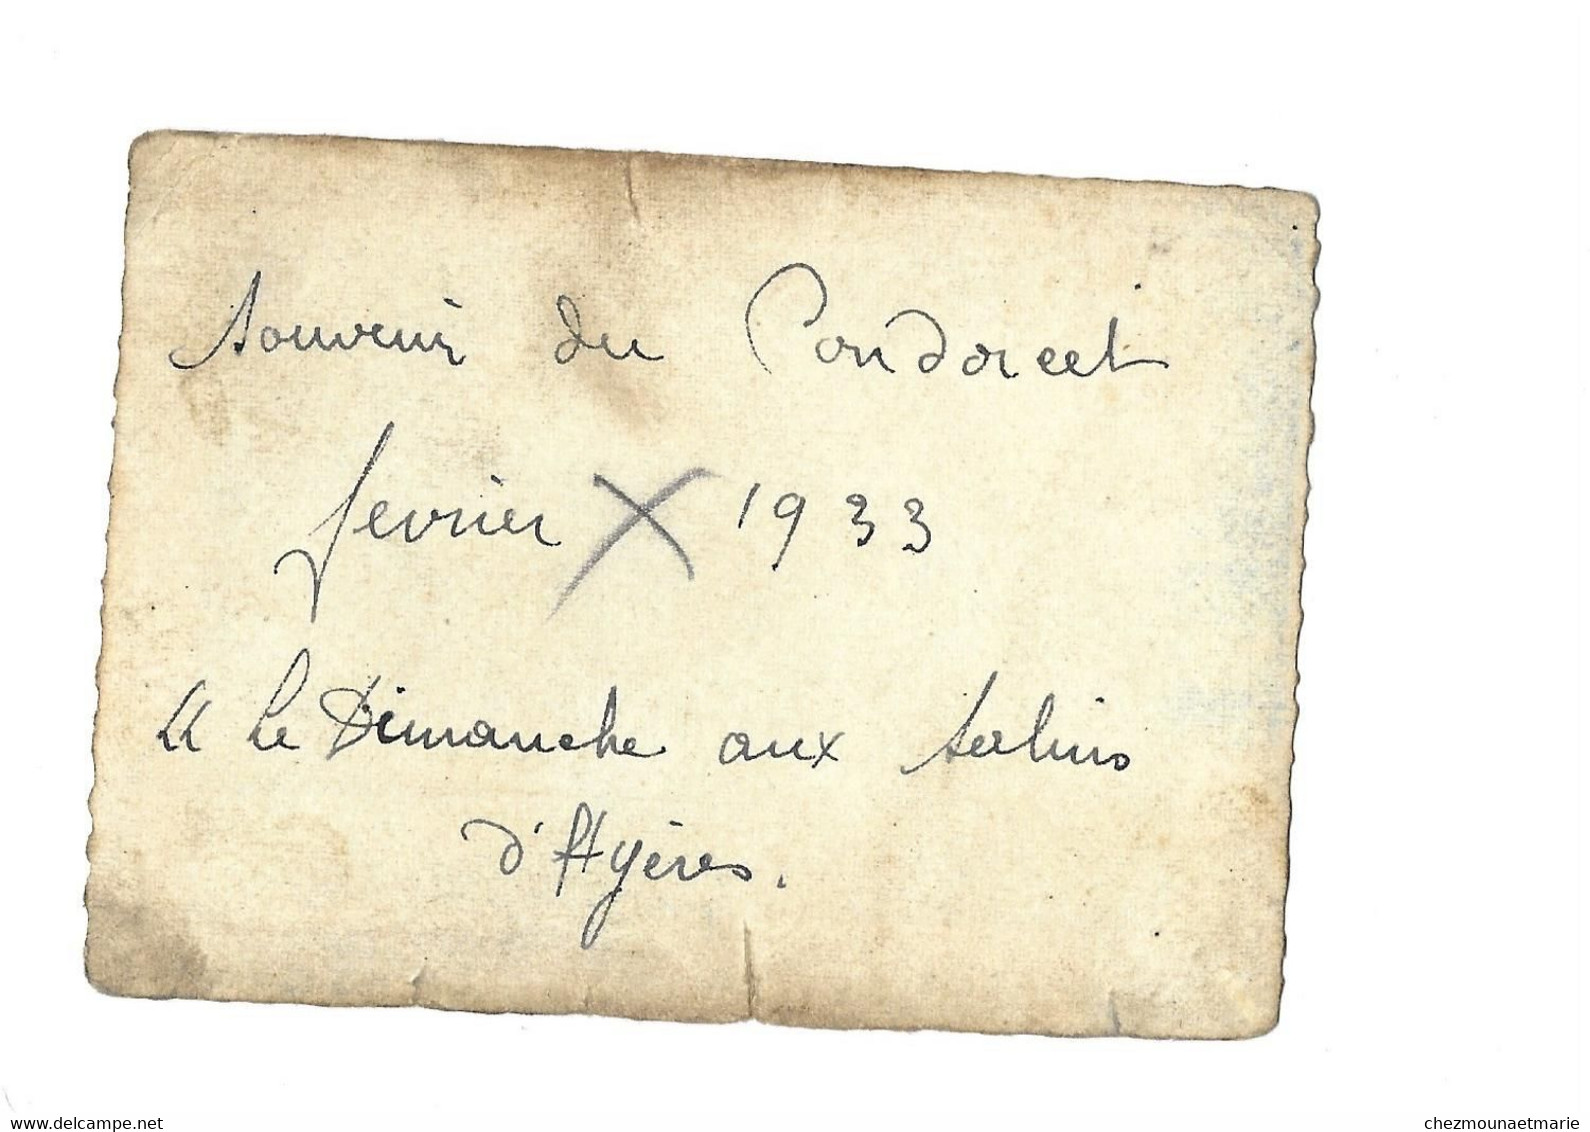 Souvenir du Condorcet
fevrier X 1933
le Dimanche aux Salins
d'Hyères.
http://www.delcampe.net
chezmounaetmarie